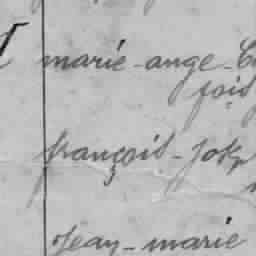 marie-ange-
fois
françois-Jos
Jean-marie